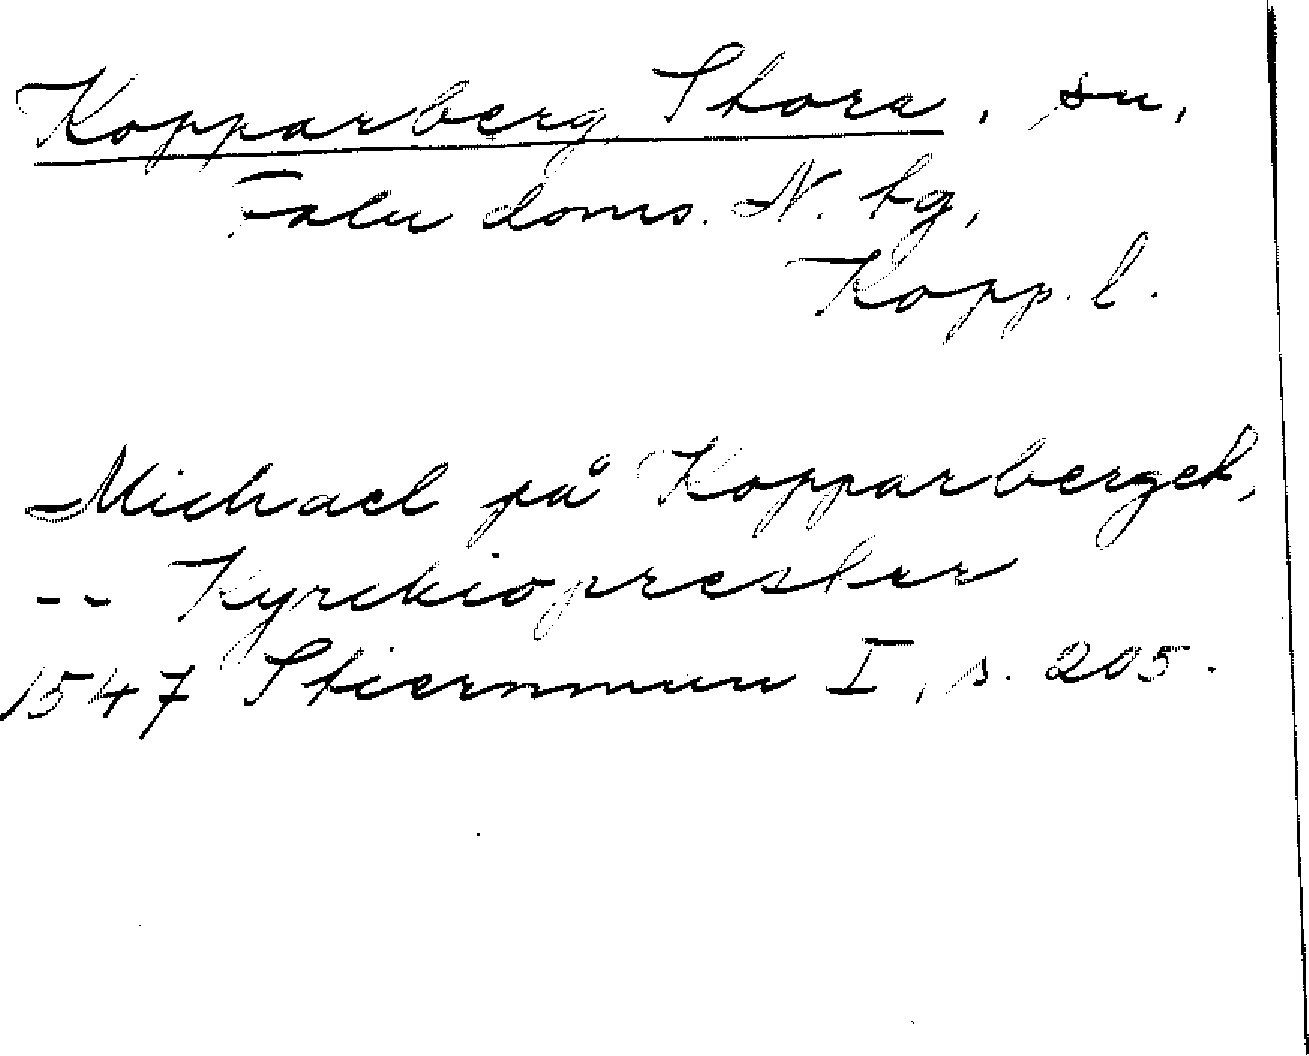 Kopparberg Stora. sn,
Falu doms. N. tg,
Kopp. l.
Michael på Kopparberget,
-- Kyrckioprester
1547 Stiernman I, s. 205.